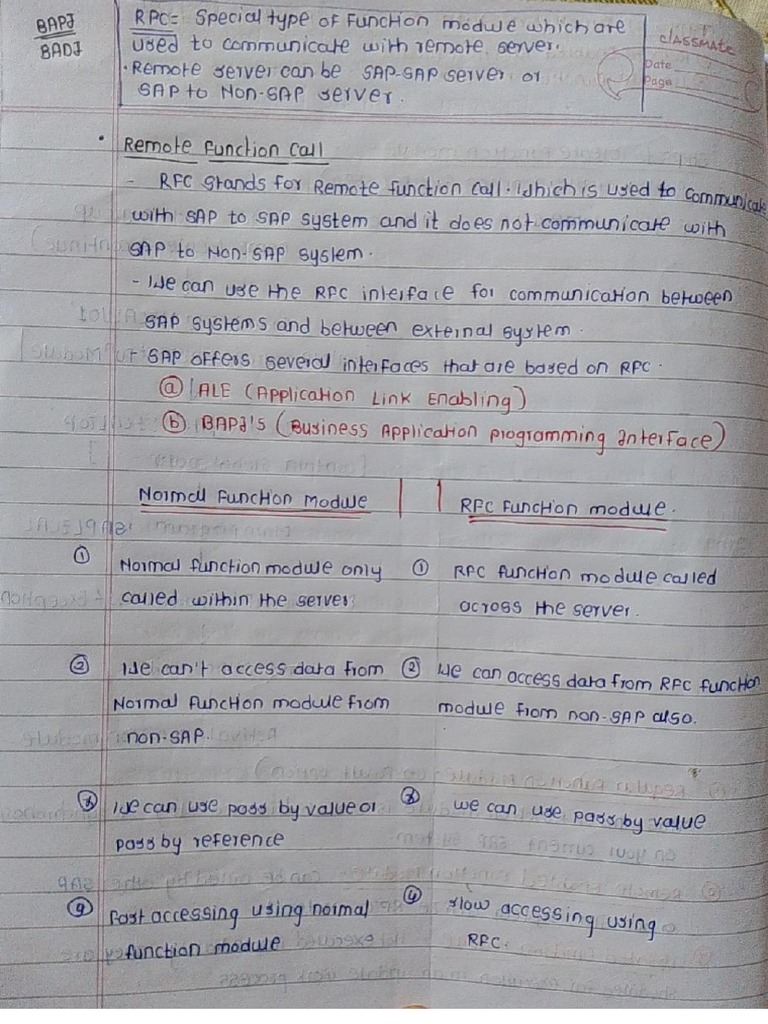 BAPI
BADI
RFC = Special type of function module which are
used to communicate with remote server.
• Remote server can be SAP-SAP server or
SAP to Non-SAP server.
classmate
Date
Page
• Remote function call
- RFC stands for Remote function call. which is used to communicate
with SAP to SAP system and it does not communicate with
SAP to Non-SAP system.
- We can use the RFC interface for communication between
SAP systems and between external system.
- SAP offers several interfaces that are based on RFC.
ⓐ ALE (Application Link Enabling)
ⓑ BAPI's (Business Application programming Interface)
Normal Function Module | | RFC function module.
① Normal function module only ① RFC function module called
called within the server across the server.
② We can't access data from ② We can access data from RFC function
Normal function module from module from non-SAP also.
non-SAP.
③ We can use pass by value or ③ we can use pass by value
pass by reference
④ fast accessing using normal ④ slow accessing using
function module RFC.